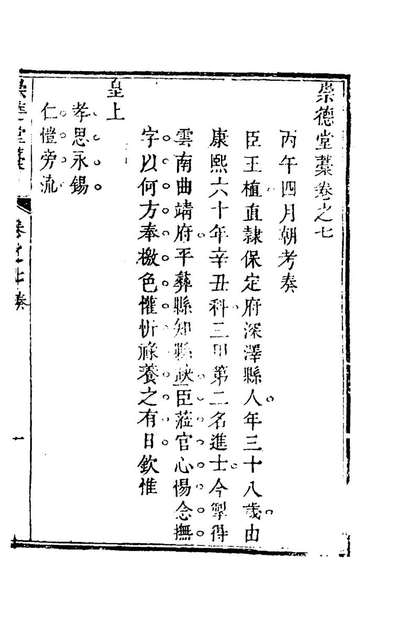 崇德堂藁卷之七
丙午四月朝考奏
臣王植直隸保定府深澤縣人年三十八歲由
康熙六十年辛丑科三甲第二名進士今掣得
雲南曲靖府平彝縣知縣缺臣蒞官心惕念撫
字以何方奉檄色懽忻祿養之有日欽惟
皇上
孝思永錫
仁愷旁流
崇德堂藁
卷之七奏
一